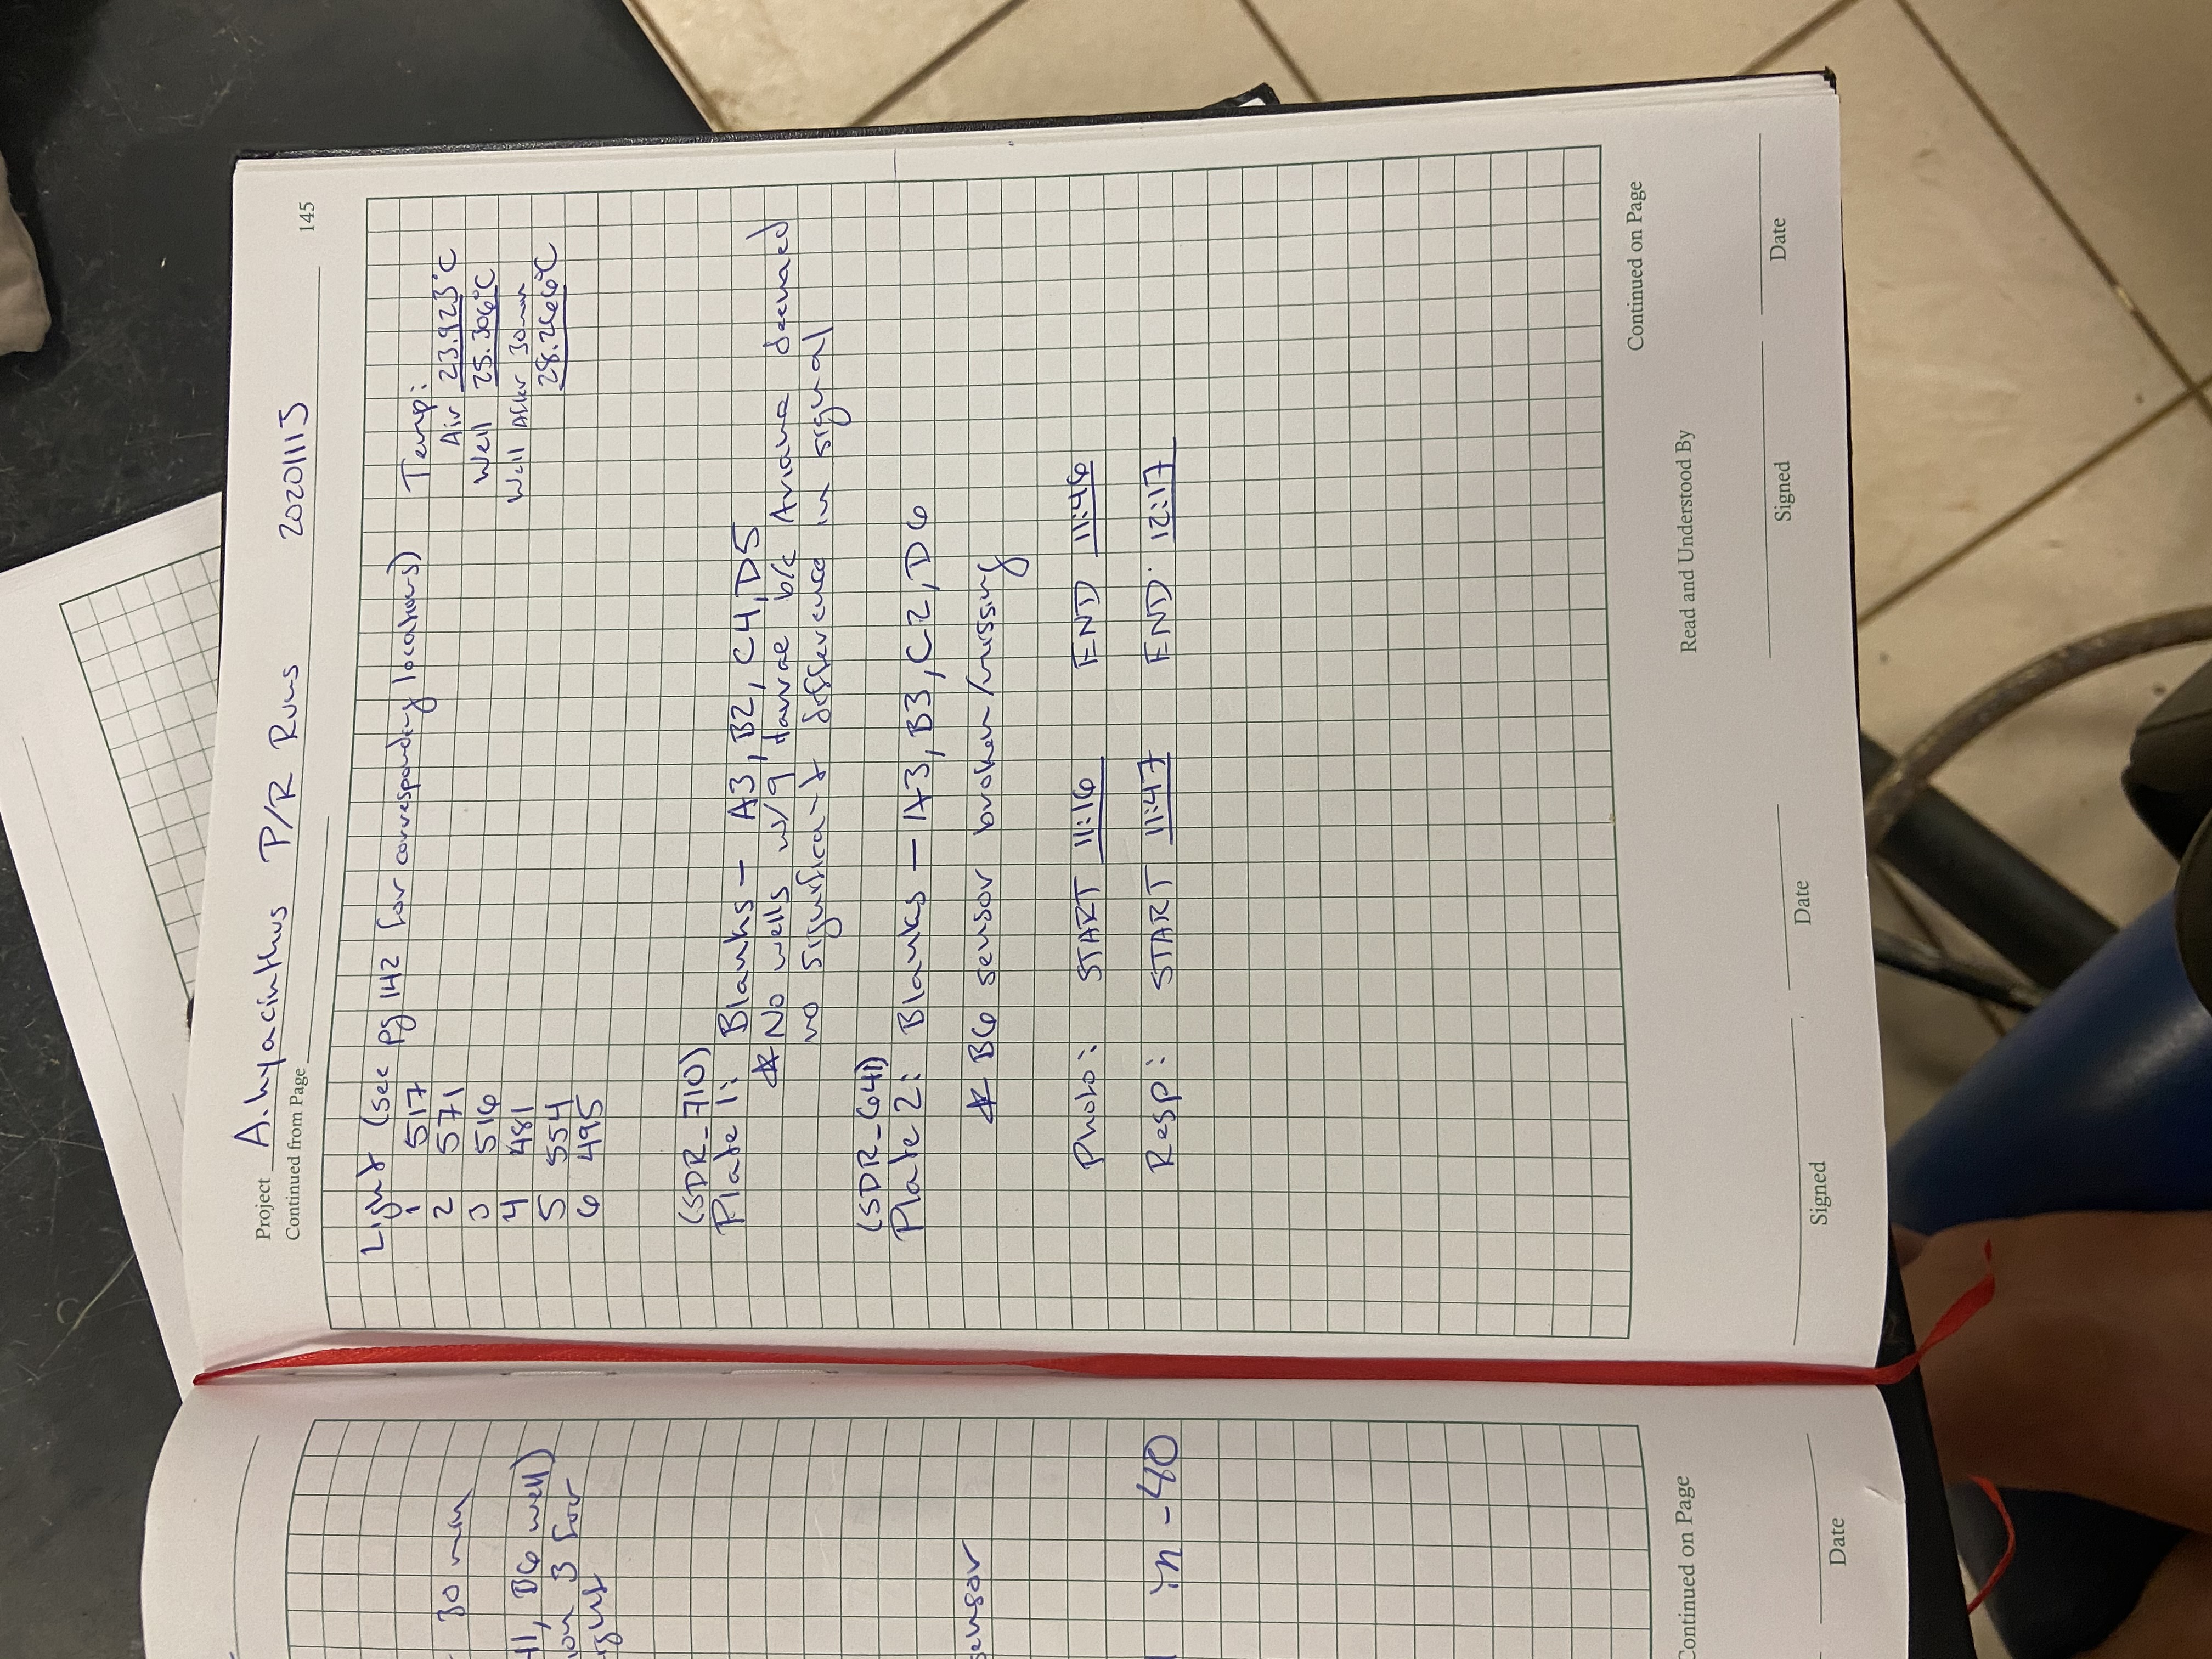 30 min
B6 well)
3 for
sensor
in -40
Continued on Page
Date
Project A. hyacinthus P/R Runs 20201115
Continued from Page
145
Light (see pg 142 for corresponding locations)
1 517
2 571
3 516
4 481
5 554
6 495
Temp:
Air 23.923°C
Well 25.306°C
Well After 30min
28.266°C
(SDR_710)
Plate 1: Blanks - A3, B2, C4, D5
* No wells w/9 larvae b/c Ariana deemed
no significant difference in signal
(SDR_641)
Plate 2: Blanks - A3, B3, C2, D6
* B6 sensor broken/missing
Photo: START 11:16 END 11:46
Resp: START 11:47 END 12:17
Continued on Page
Read and Understood By
Signed
Date
Signed
Date